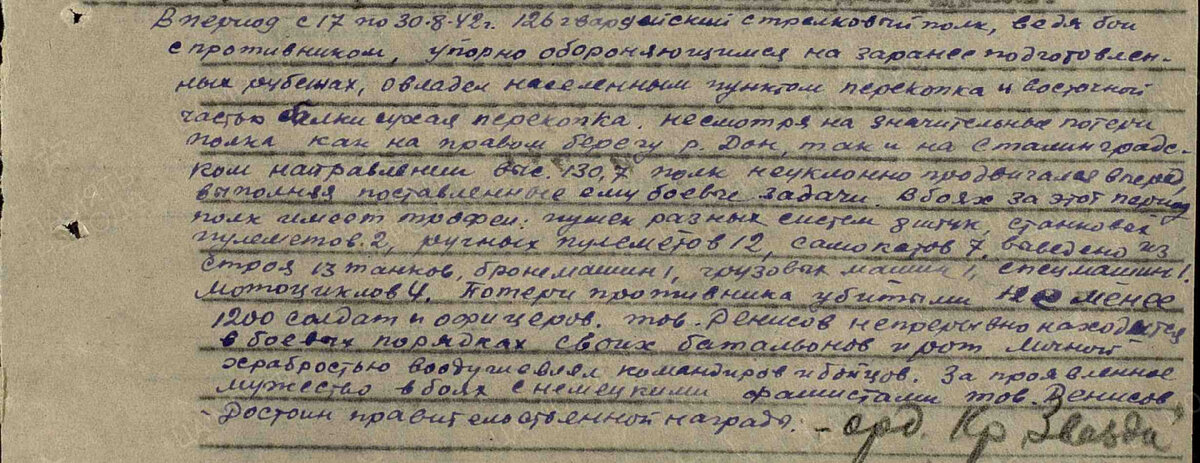 В период с 17 по 30.8.42г. 126 гвардейский стрелковый полк, ведя бои
с противником, упорно обороняющимся на заранее подготовлен-
ных рубежах, овладел населенным пунктом перекопка и восточной
частью балки сухая перекопка. несмотря на значительные потери
полка как на правом берегу р. Дон, так и на Сталинградс-
ком направлении выс. 130,7 полк неуклонно продвигался вперед,
выполняя поставленные ему боевые задачи. в боях за этот период
полк имеет трофеи: пушек разных систем 8 штук, станковых
пулеметов 2, ручных пулеметов 12, самокатов 7, выведено из
строя 13 танков, бронемашин 1, грузовых машин 1, спецмашин 1.
мотоциклов 4. Потери противника убитыми не менее
1200 солдат и офицеров. тов. Денисов непрерывно находится
в боевых порядках своих батальонов и рот личной
храбростью воодушевлял командиров и бойцов. За проявленное
мужество в боях с немецкими фашистами тов. Денисов
- Достоин правительственной награды. - орд. Кр Звезда"